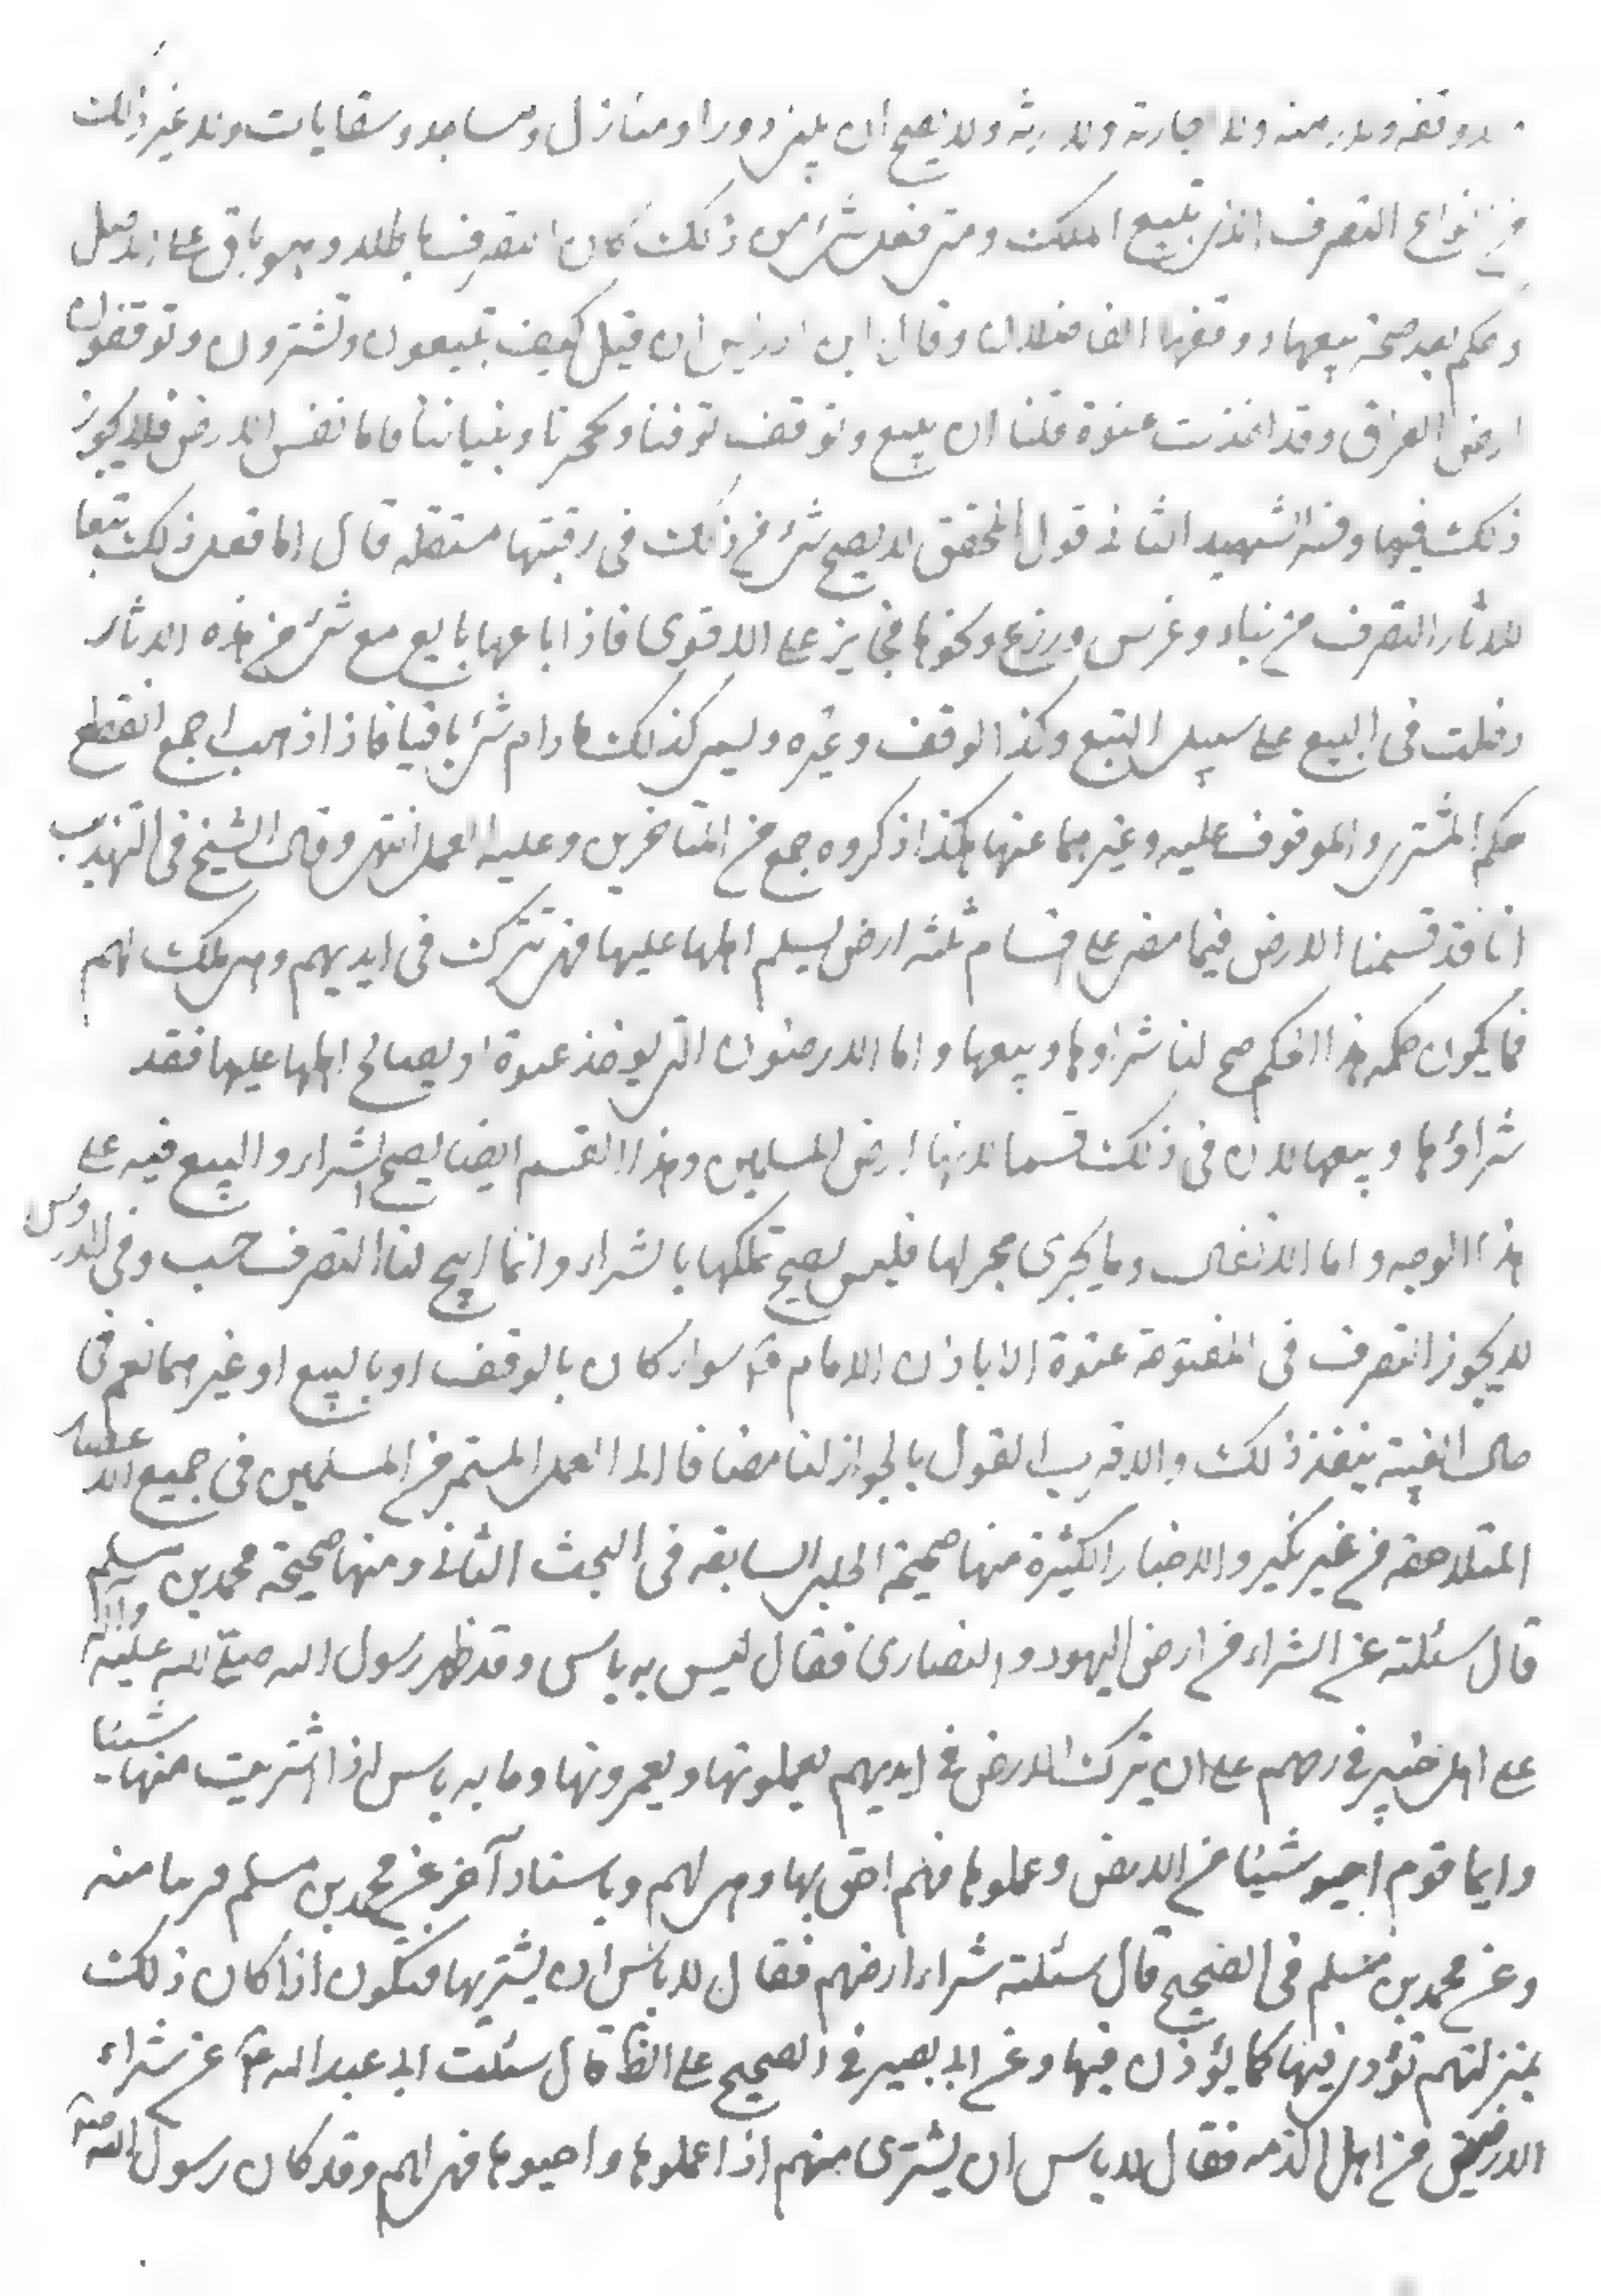 ولا وقفه ولا رهنه ولا اجارته ولا ارثه ولا يصح ان يبنى دورا ومنازل ومساجد وسقايات ولا غير ذلك
من انواع التصرف الذى يتبع الملك ومتى فعل شئ من ذلك كان التصرف باطلا وهو باق على الاصل
وحكم بعد صحة بيعها ووقفها الفاضلان وقال ابن ادريس ان قيل كيف تبيعون وتشترون وتوقفون
ارض العراق وقد اخذت عنوة قلنا ان نبيع ونوقف تصرفنا وتحجيرنا وبنياننا فاما نفس الارض فلا يجوز
ذلك فيها وفسر الشهيد الثانى قول المحقق لا يصح شئ من ذلك فى رقبتها مستقله قال اما فعل ذلك تبعا
للاثار التصرف من بناء وغرس وزرع ونحوها فجايز على الاقوى فاذا باعها بايع مع شئ من هذه الاثار
دخلت فى البيع على سبيل التبع وكذا الوقف وغيره وليس كذلك مادام شئ باقيا فاذا ذهب اجمع انقطع
حكم المشترى والموقوف عليه وغيرهما عنها هكذا ذكروه جمع من المتاخرين وعليه العمل انتهى وقال الشيخ فى التهذيب
انا قد قسمنا الارض فيما مضى على اقسام ثلثه ارض يسلم اهلها عليها فهى تترك فى ايديهم وهى ملك لهم
فما يكون حكمه هذا الحكم صح لنا شراؤها وبيعها واما الارضون التى يوخذ عنوة او يصالح اهلها عليها فقد
شراؤها وبيعها لان فى ذلك قسما لانها ارض المسلمين وهذا القسم ايضا يصح الشراء والبيع فيه على
هذا الوجه واما الانفال وما يجرى مجراها فليس يصح تملكها بالشراء وانما ابيح لنا التصرف حسب وفى الدروس
لا يجوز التصرف فى المفتوحة عنوة الا باذن الامام ع سواء كان بالوقف او بالبيع او غيرهما نعم فى
حال الغيبة ينفذ ذلك والاقرب القول بالجواز لنا مضافا الى العمل المستمر من المسلمين فى جميع الاعصار
المتلاحقه من غير نكير والاخبار الكثيرة منها صحيحة الحلبى السابقه فى البحث الثانى ومنها صحيحة محمد بن مسلم
قال سئلته عن الشراء من ارض اليهود والنصارى فقال ليس به باس وقد ظهر رسول الله صلى الله عليه وآله
على اهل خيبر فخارجهم على ان يترك الارض فى ايديهم يعملونها ويعمرونها وما به باس اذا اشتريت منها شيئا
وايما قوم احيو شيئا من الارض وعملوها فهم احق بها وهى لهم وباسناد آخر عن محمد بن مسلم قريبا منه
وعن محمد بن مسلم فى الصحيح قال سئلته شراء ارضهم فقال لا باس ان يشتريها فتكون اذا كان ذلك
بمنزلتهم تؤدى فيها كما يؤدون فيها وعن ابى بصير فى الصحيح على الظ قال سئلت ابى عبد الله ع عن شراء
الارضين من اهل الذمه فقال لا باس ان يشترى منهم اذا عملوها واحيوها فهى لهم وقد كان رسول الله ص